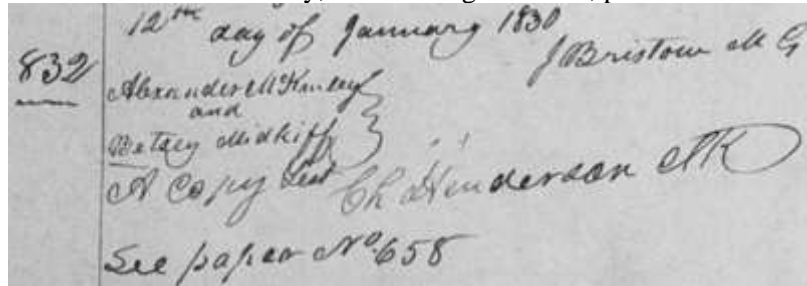 12th day of January 1830
J Bristow M G
832
Alexander McKinley
and
Betsey Midkiff
A Copy Test Ch Henderson
See paper No. 658